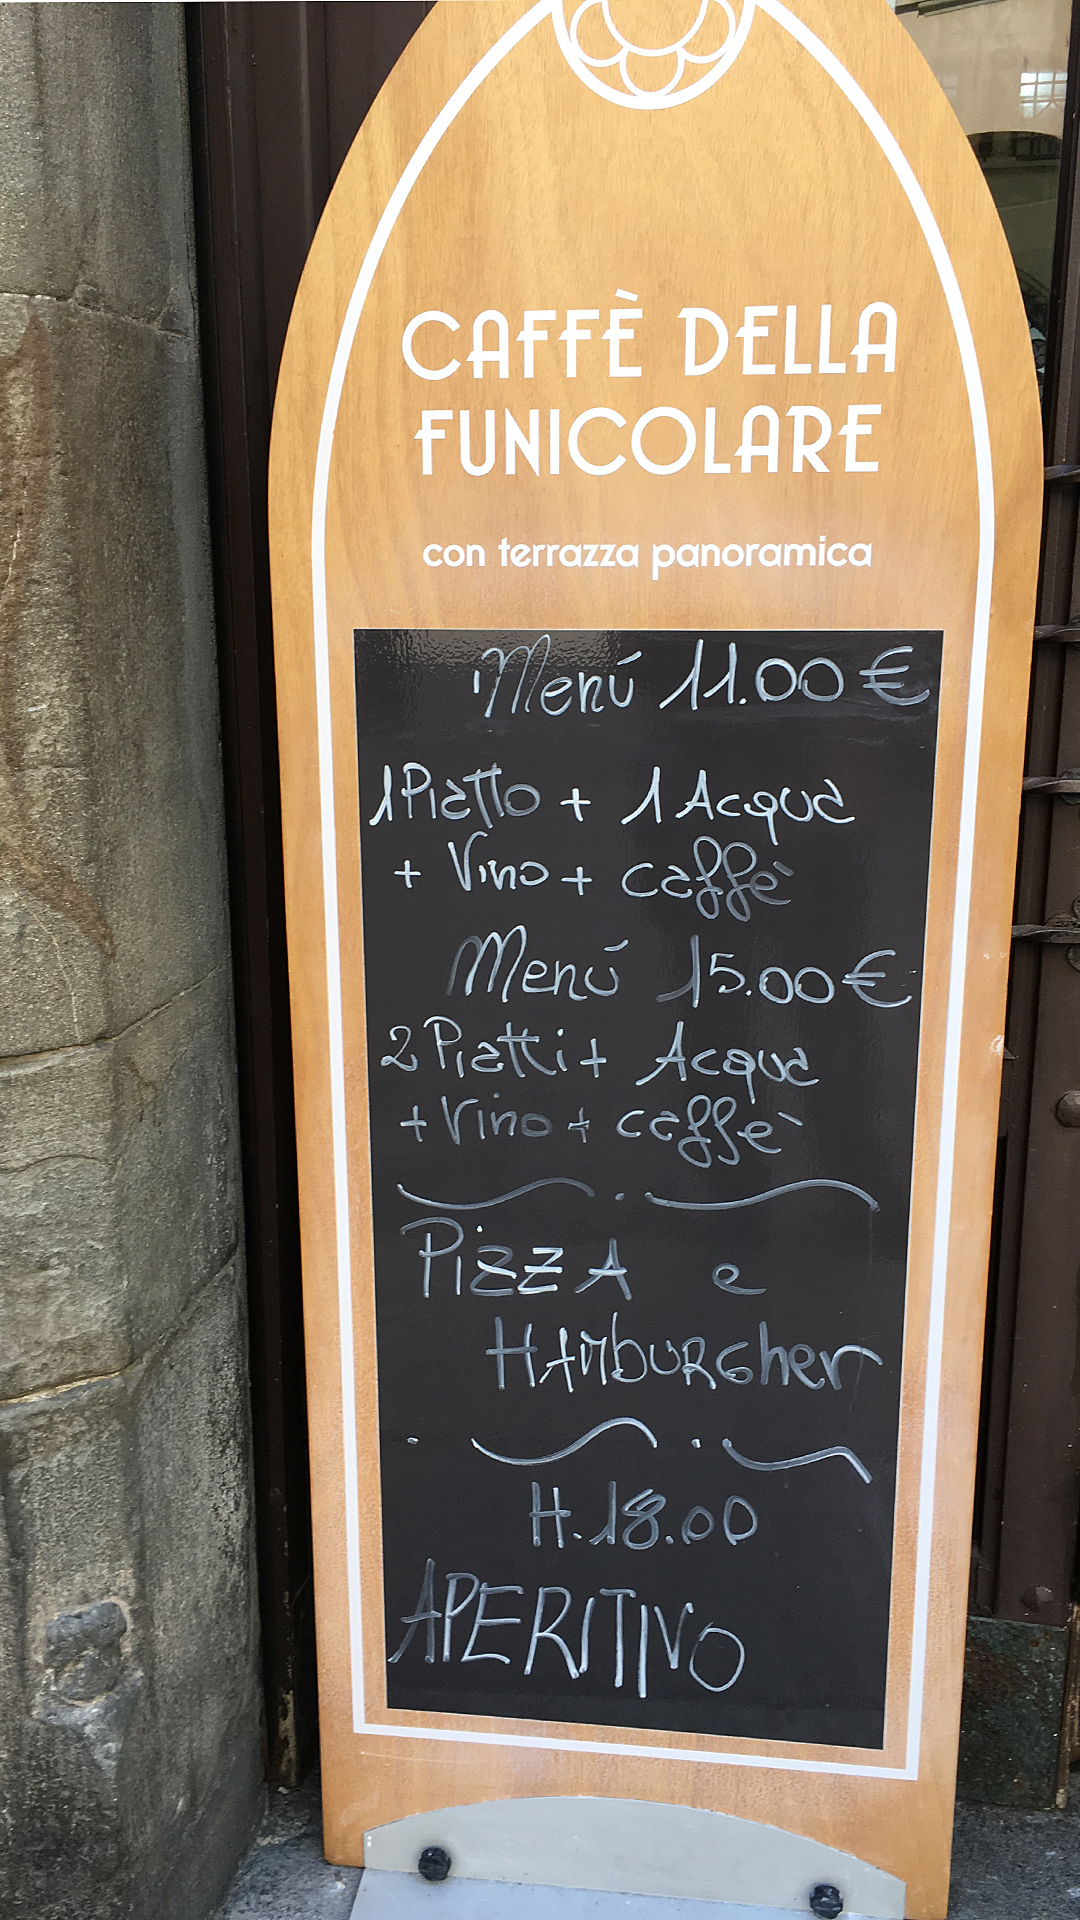 CAFFÈ DELLA
FUNICOLARE
con terrazza panoramica
Menú 11.00 €
1 Piatto + 1 Acqua
+ Vino + caffè
Menú 15.00 €
2 Piatti + Acqua
+ Vino + caffè
PizzA e
HAMburGher
H. 18.00
APERITIVO